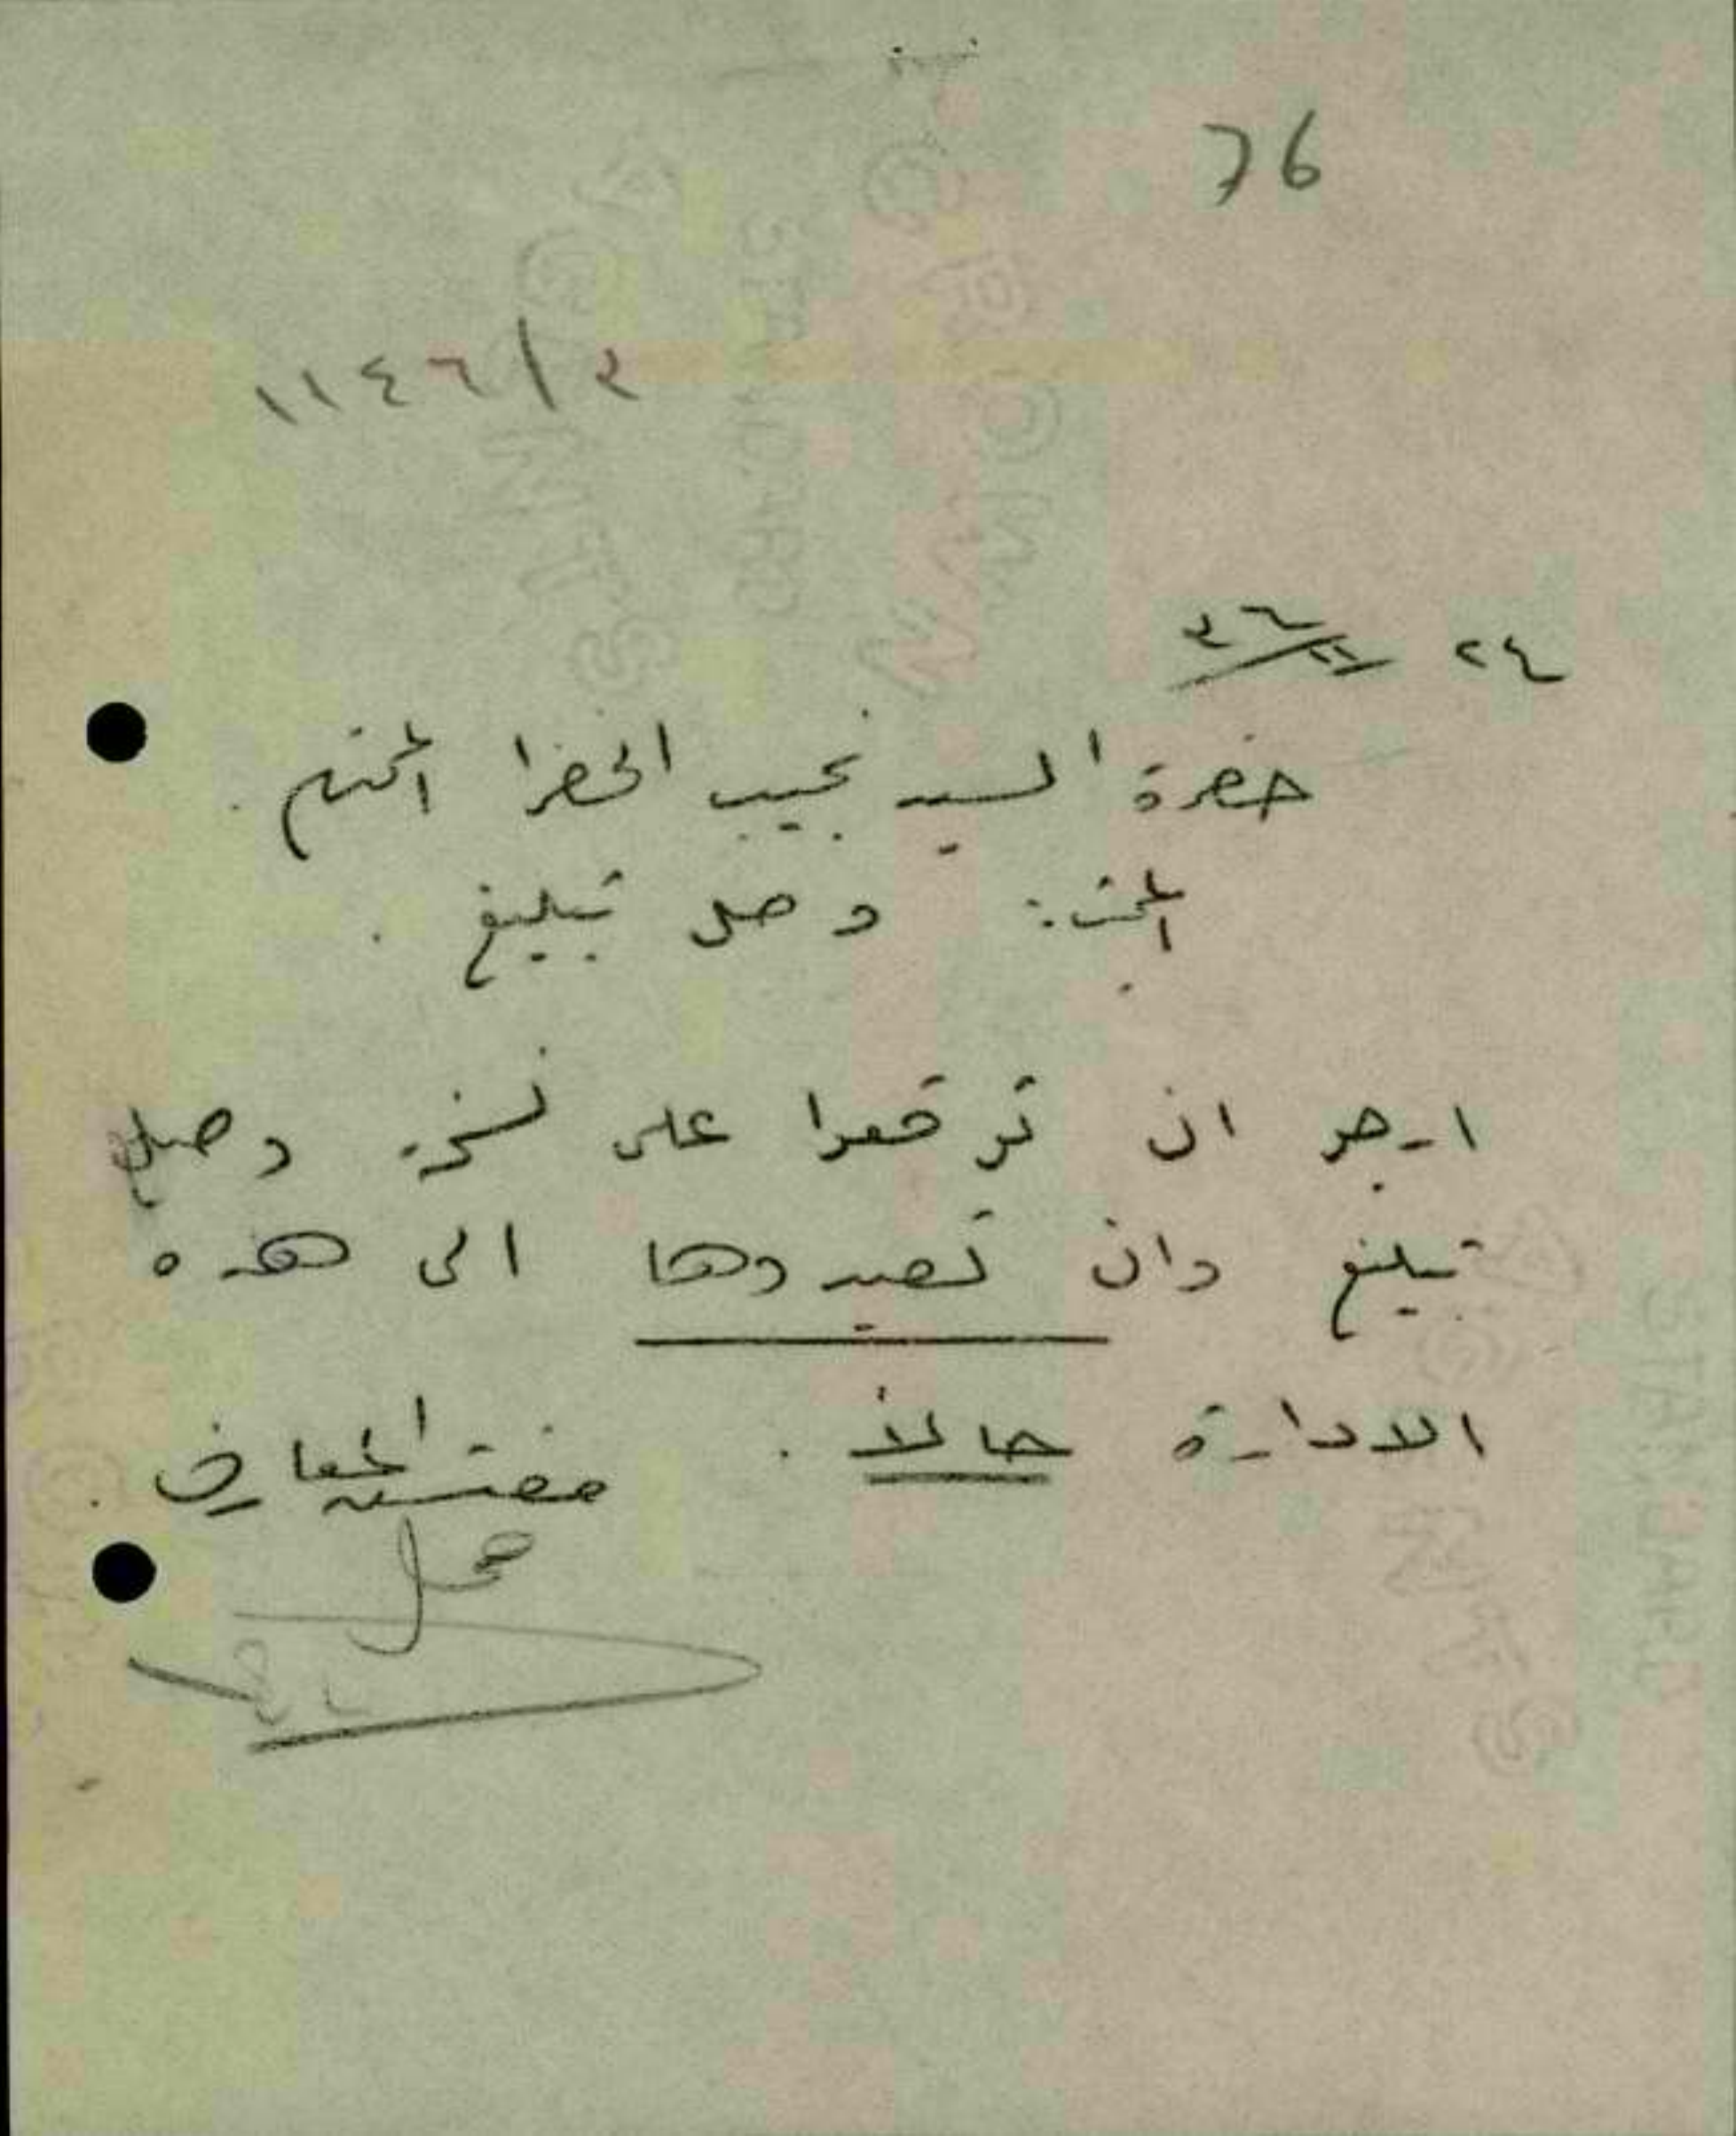 76
١١٤٦/٢
٢٤/١١/٣٦
حضرة السيد نجيب الخضرا المحترم.
المبحث: وصل تبليغ.
ارجو ان توقعوا على نسخة وصل
تبليغ وان تعيدوها الى هذه
الادارة حالاً.
مفتش المعارف.